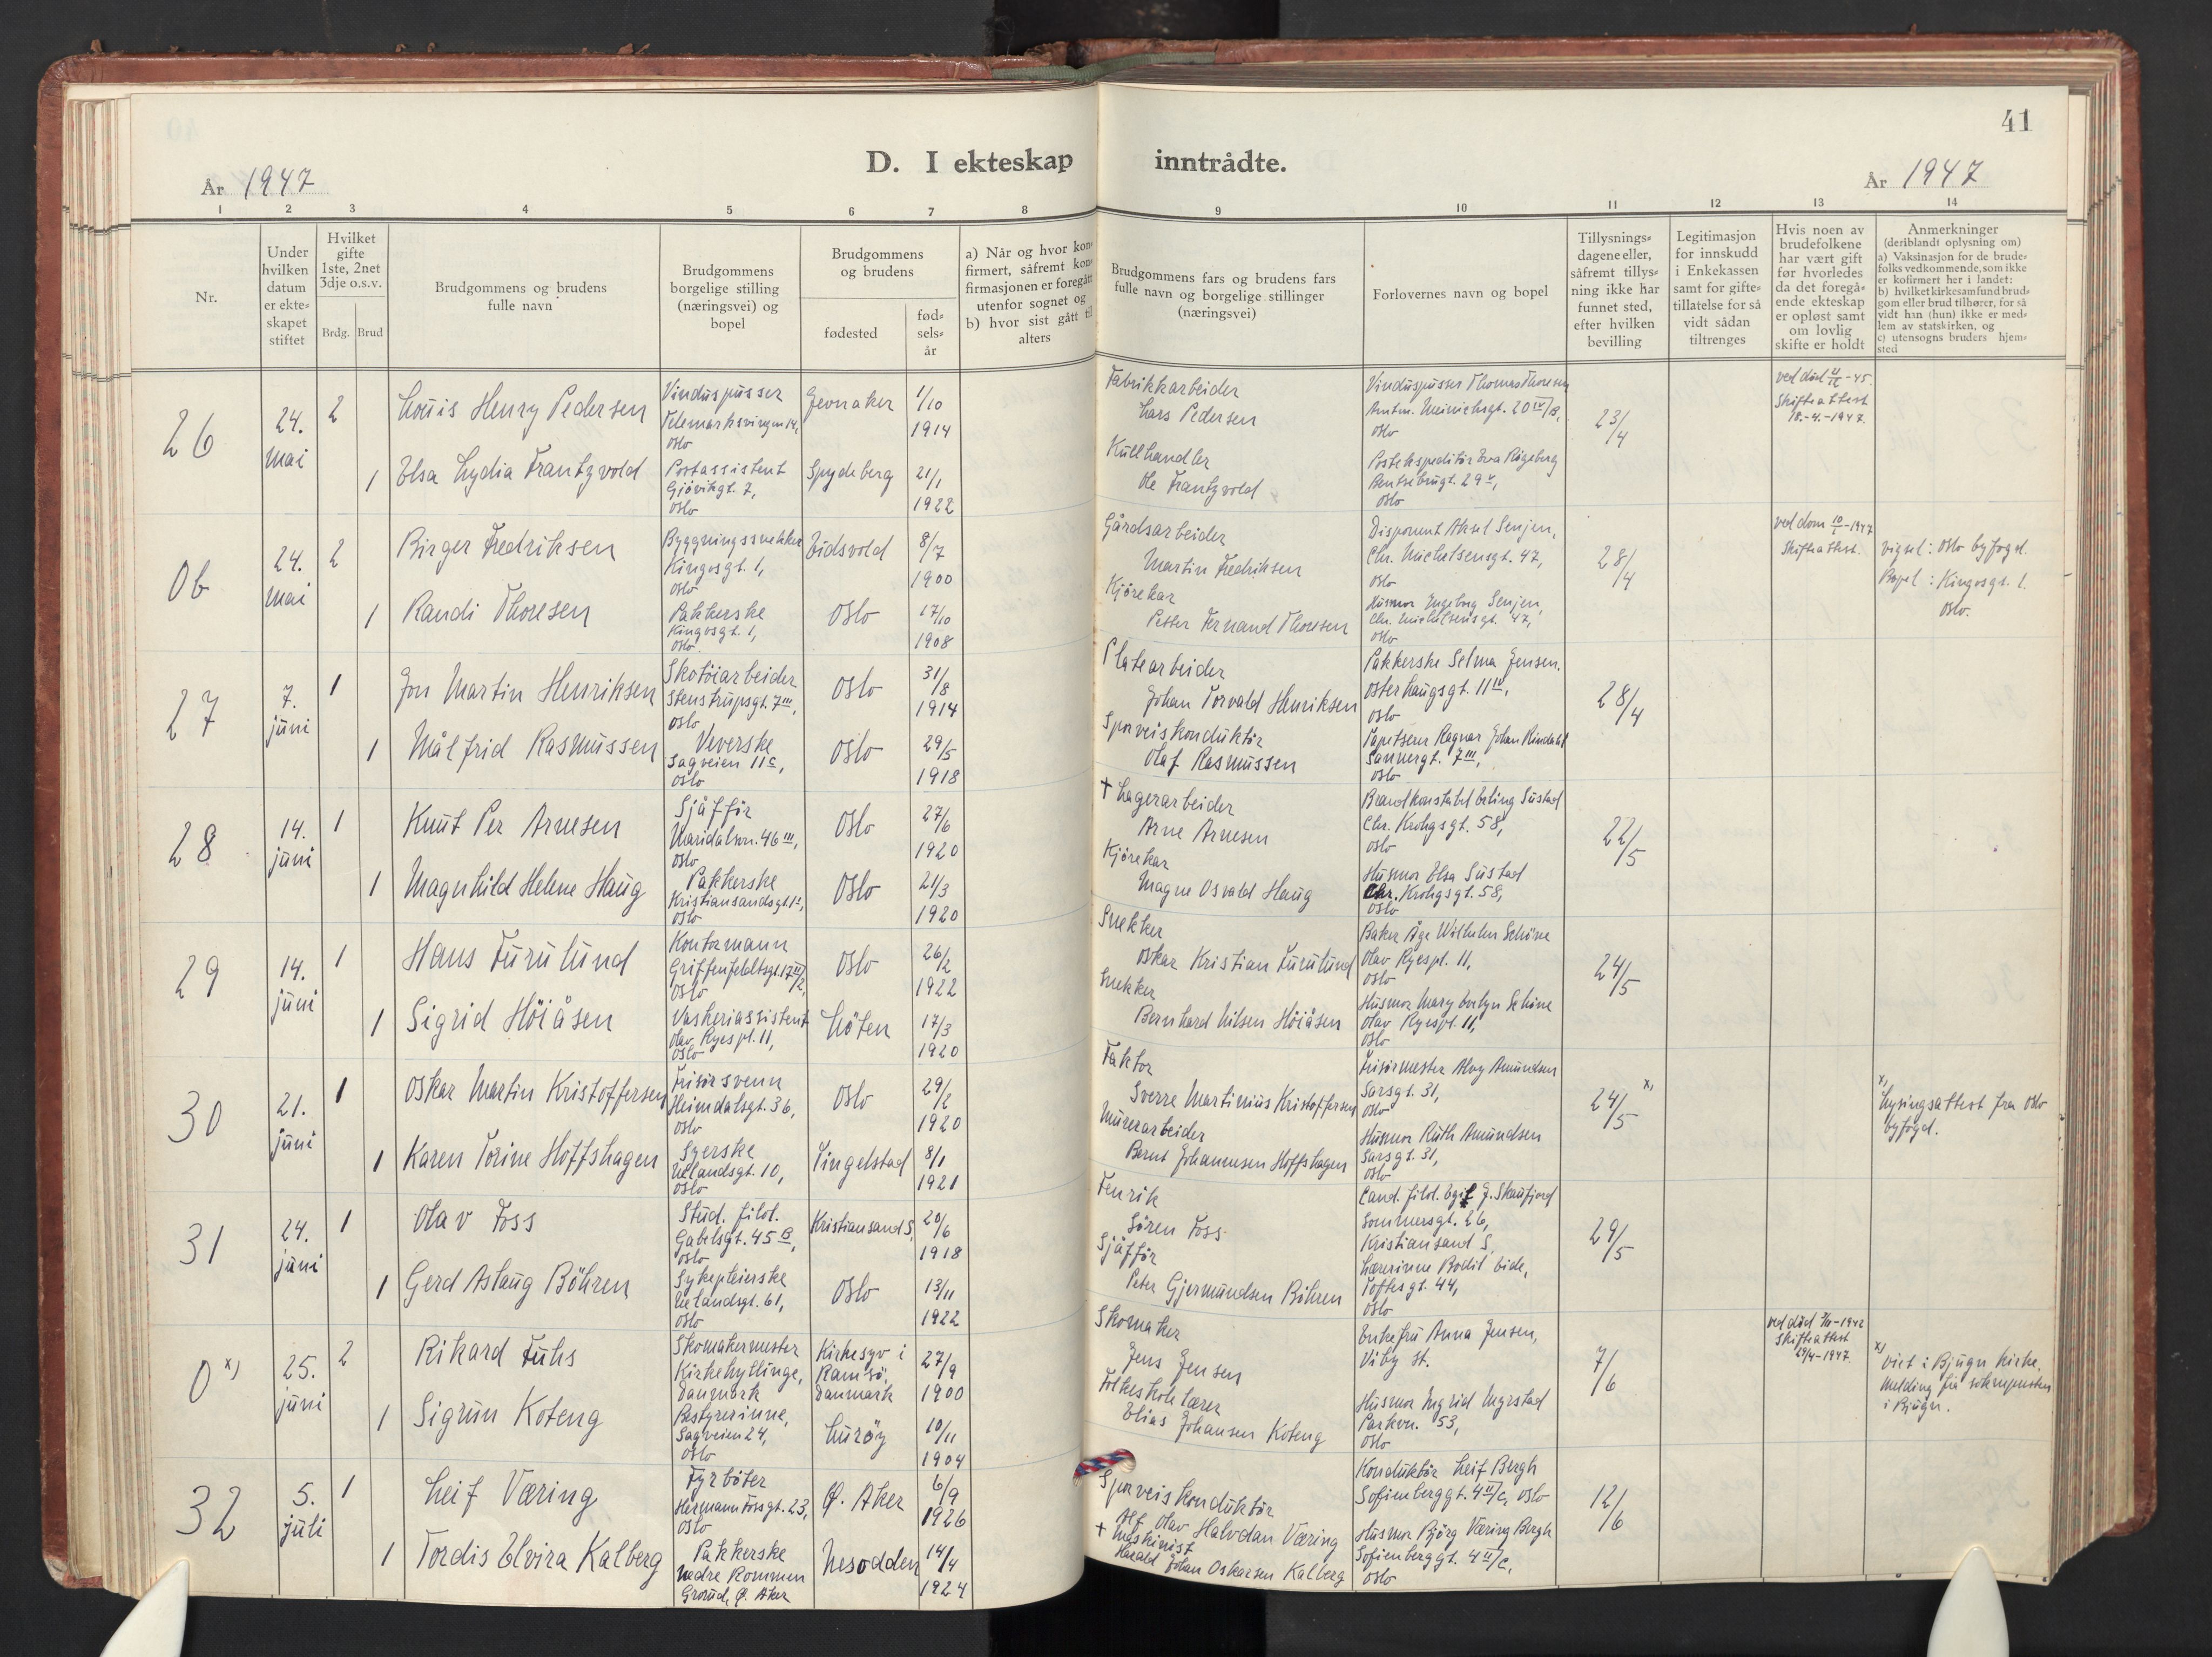 41
D. I ekteskap inntrådte.
År 1947
År 1947
1 2 3 4 5 6 7 8 9 10 11 12 13 14
Nr.
Under hvilken datum er ekte=skapet stiftet
Hvilket gifte 1ste, 2net 3dje o.s.v.
Brdg. Brud
Brudgommens og brudens fulle navn
Brudgommens borgelige stilling (næringsvei) og bopel
Brudgommens og brudens
fødested
fød=sels=år
a) Når og hvor kon=firmert, såfremt kon=firmasjonen er foregått utenfor sognet og
b) hvor sist gått til alters
Brudgommens fars og brudens fars fulle navn og borgelige stillinger (næringsvei)
Forlovernes navn og bopel
Tillysnings=dagene eller, såfremt tillys=ning ikke har funnet sted, efter hvilken bevilling
Legitimasjon for innskudd i Enkekassen samt for gifte=tillatelse for så vidt sådan tiltrenges
Hvis noen av brudefolkene har vært gift før hvorledes da det foregå=ende ekteskap er opløst samt om lovlig skifte er holdt
Anmerkninger (deriblandt oplysning om)
a) Vaksinasjon for de brude=folks vedkommende, som ikke er kofirmert her i landet:
b) hvilket kirkesamfund brud=gom eller brud tilhører, for så vidt han (hun) ikke er med=lem av statskirken, og
c) utensogns bruders hjem=sted
26
24. mai
2
Louis Henry Pedersen
Vinduspusser
Telemarksvingen 14,
Oslo
Jevnaker
1/10
1914
Fabrikkarbeider
Lars Pedersen
Vinduspusser Thomas Thoresen
Amtm. Meinichsgt. 20 IV/B,
Oslo
23/4
ved död 11/12-45.
Skifteattest
18.-4.-1947.
1
Elsa Lydia Frantzvold
Postassistent
Gjövikgt. 7,
Oslo
Spydeberg
21/1
1922
Kullhandler
Ole Frantzvold
Postekspeditör Eva Rögeberg
Bentsebrugt. 29 V,
Oslo
0b
24. mai
2
Birger Fredriksen
Byggningssnekker
Kingosgt. 1,
Oslo
Eidsvold
8/7
1900
Gårdsarbeider
Martin Fredriksen
Disponent Aksel Senjen,
Chr. Michelsensgt. 47,
Oslo
28/4
ved dom 10/1-1947
Skifteattest.
vigsel: Oslo byfogd.
Bopel: Kingosgt. 1.
Oslo.
1
Randi Thoresen
Pakkerske
Kingosgt. 1,
Oslo.
Oslo
17/10
1908
Kjörekar
Petter Fernand Thoresen
Husmor Ingeborg Senjen,
Chr. Michelsensgt. 47,
Oslo
27
7. juni
1
Jon Martin Henriksen
Skotöiarbeider
Stenstrupsgt. 7 III,
Oslo
Oslo
31/8
1914
Platearbeider
Johan Torvald Henriksen
Pakkerske Selma Jensen.
Osterhaugsgt. 11 IV,
Oslo
28/4
1
Målfrid Rasmussen
Veverske
Sagveien 11 c,
Oslo
Oslo
29/5
1918
Sporveiskonduktör
Olaf Rasmussen
Tapetserer Ragnar Johan Rindahl
Sannergt. 7 III,
Oslo
28
14. juni
1
Knut Per Arnesen
Sjåfför
Maridalsvn. 46 III,
Oslo
Oslo
27/6
1920
+ Lagerarbeider
Arne Arnesen
Brandkonstabel Erling Sustad
Chr. Krohgsgt. 58,
Oslo
22/5
1
Magnhild Helene Haug
Pakkerske
Kristiansandsgt. 1 c,
Oslo
Oslo
21/3
1920
Kjörekar
Magne Osvald Haug
Husmor Elsa Sustad
Chr. Krohgsgt. 58,
Oslo
29
14. juni
1
Hans Furulund
Kontormann
Griffenfeldtsgt. 17 III/2,
Oslo
Oslo
26/2
1922
Snekker
Oskar Kristian Furulund
Baker Åge Wilhelm Schöne
Olav Ryespl. 11,
Oslo
24/5
1
Sigrid Höiåsen
Vaskeriassistent
Olav Ryes pl. 11,
Oslo
Löten
17/3
1920
Snekker
Bernhard Nilsen Höiåsen
Husmor Mary Evelyn Schöne
Olav Ryespl. 11,
Oslo
30
21. juni
1
Oskar Martin Kristoffersen
Frisörsvenn
Heimdalsgt. 36,
Oslo
Oslo
29/2
1920
Faktor
Sverre Martinius Kristoffersen
Frisörmester Alvy Amundsen
Sarsgt. 31,
Oslo
24/5 x)
x) Lysingsattest fra Oslo
byfogd.
1
Karen Torine Hoffshagen
Syerske
Uelandsgt. 10,
Oslo
Tingelstad
8/1
1921
Murerarbeider
Bernt Johannesen Hoffshagen
Husmor Ruth Amundsen
Sarsgt. 31,
Oslo
31
24. juni
1
Olav Foss
Stud. filol.
Gabelsgt. 45 B,
Oslo
Kristiansand S.
20/6
1918
Fenrik
Sören Foss
Cand. filol. Egil J. Skaufjord
Sommersgt. 26,
Kristiansand S.
29/5
1
Gerd Aslaug Böhren
Sykepleierske
Uelandsgt. 61,
Oslo
Oslo
13/11
1922
Sjåfför
Peter Gjermundsen Böhren
Lærerinne Bodil Eide,
Toftesgt. 44,
Oslo
0 x)
25. juni
2
Rikard Fuhs
Skomakermester
Kirkehyllinge,
Danmark
Kirkesyv i
Ramsö.
Danmark
27/9
1900
Skomaker
Jens Jensen
Enkefru Anna Jensen,
Viby St.
7/6
Skifteattest
29/4-1947.
x) Viet i Bjugn kirke.
Melding fra soknepresten
i Bjugn.
1
Sigrun Koteng
Bestyrerinne,
Sagveien 24,
Oslo
Luröy
10/11
1904
Folkeskolelærer
Elias Johansen Koteng
Husmor Ingrid Myrstad
Parkvn. 53,
Oslo
32
5. juli
1
Leif Væring
Fyrböter
Hermann Fossgt. 23,
Oslo
Ø. Aker
6/9
1926
Sporveiskonduktör
Alf Olav Halvdan Væring
Konduktör Leif Bergh
Sofienberggt. 4 II/c, Oslo
12/6
1
Tordis Elvira Kalberg
Pakkerske
Nedre Rommen
Grorud, Ø. Aker
Nesodden
14/4
1924
+ Maskinist
Harald Johan Oskarsen Kalberg
Husmor Björg Væring Bergh
Sofienberggt. 4 II/c,
Oslo